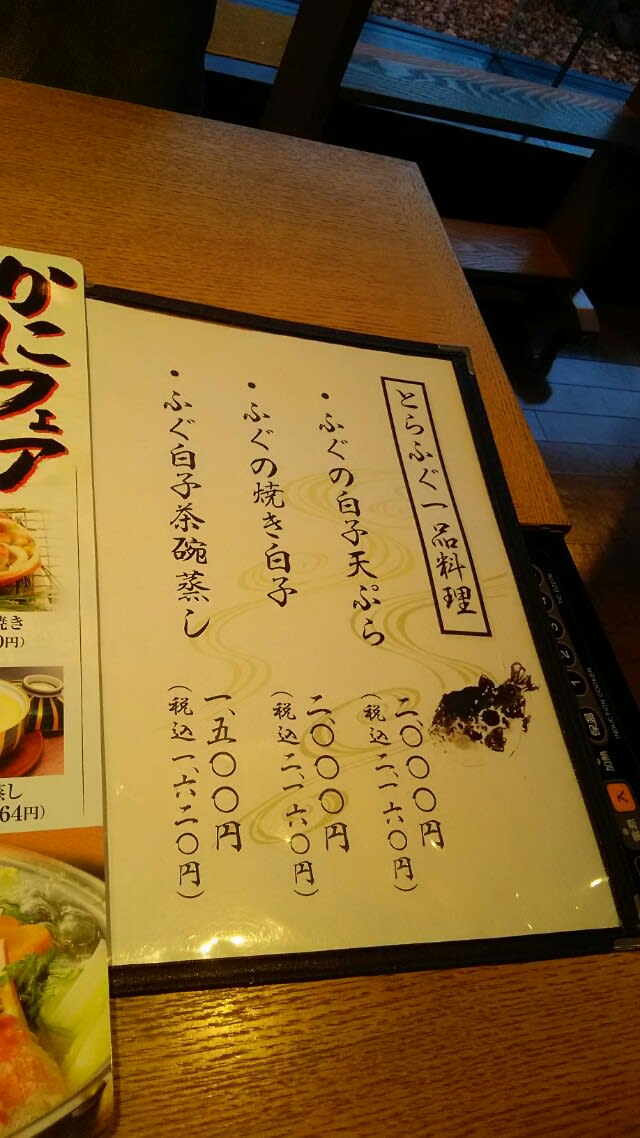 とらふぐ一品料理
・ふぐの白子天ぷら
二、〇〇〇円
(税込二、一六〇円)
・ふぐの焼き白子
二、〇〇〇円
(税込二、一六〇円)
・ふぐ白子茶碗蒸し
一、五〇〇円
(税込一、六二〇円)
かにフェア
焼き
0円)
蒸し
64円)
INDUCTION COOKER
保温
1
2
3
加熱
入